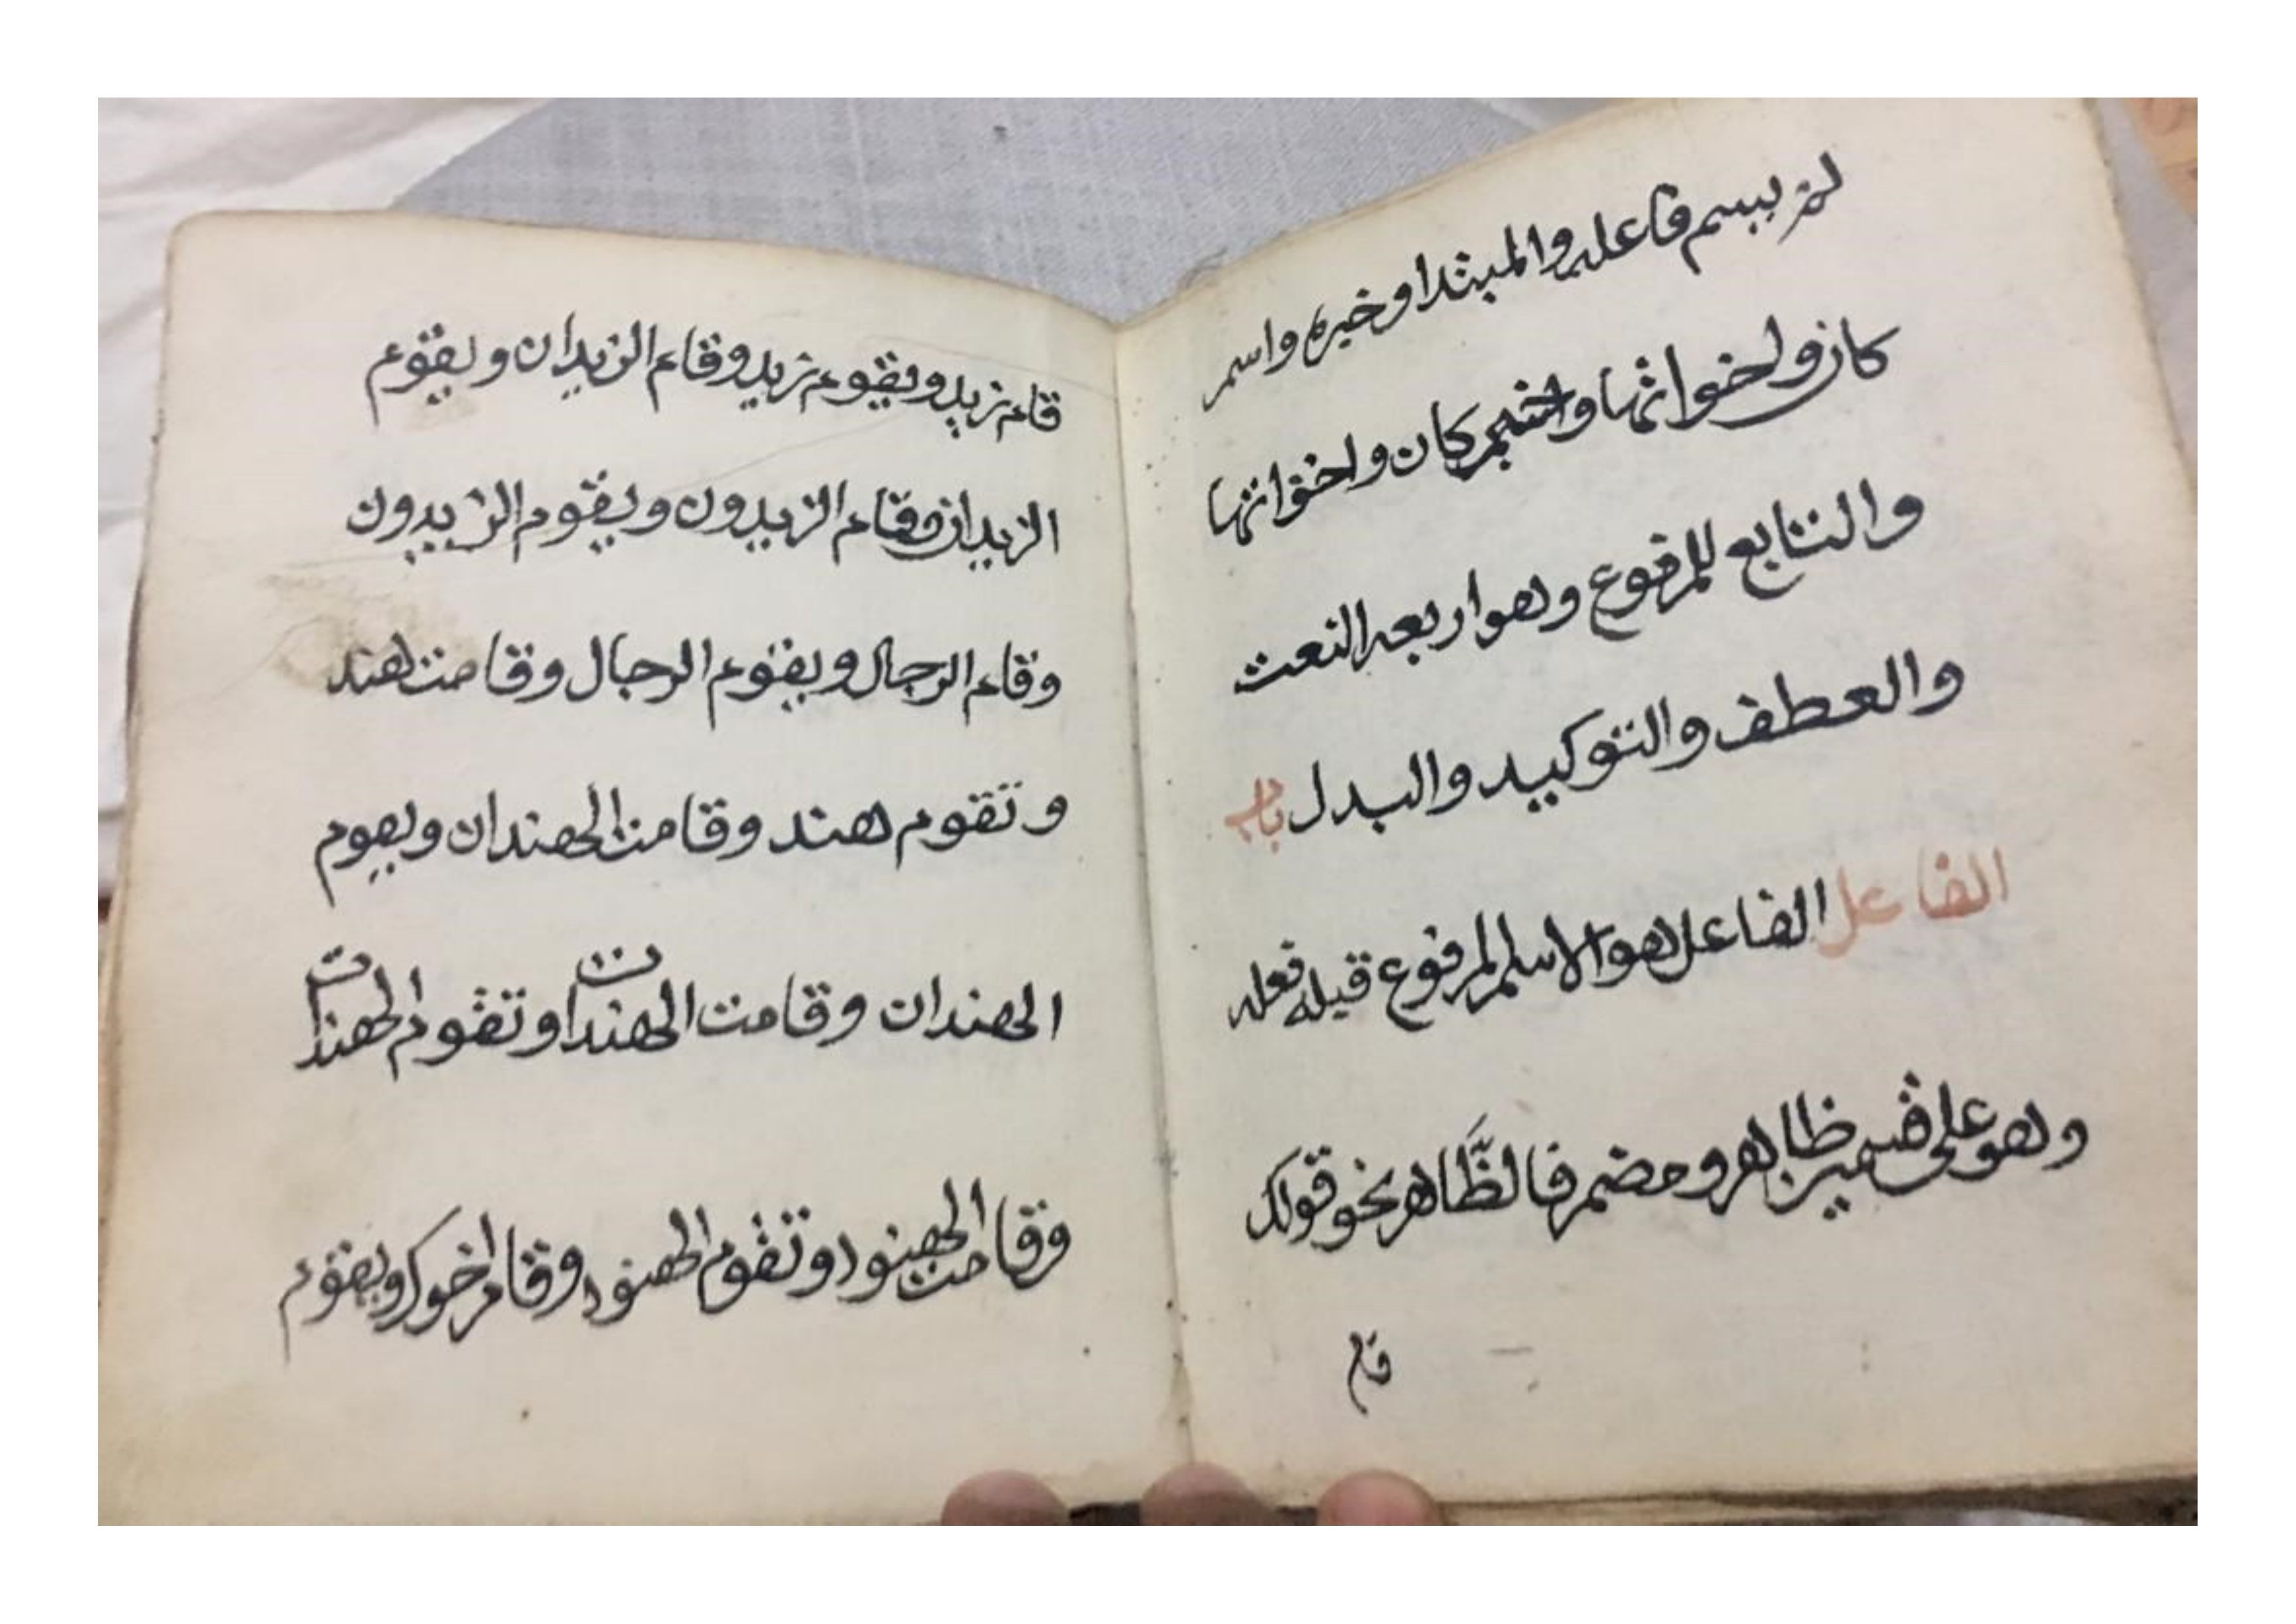 لم يسم فاعله والمبتدا وخبره واسم
كان واخواتها وخبر كان واخواتها
والتابع للمرفوع وهو اربعه النعت
والعطف والتوكيد والبدل باب
الفاعل الفاعل هو الاسلم المرفوع قبله فعله
وهو على قسمين ظاهر ومضمر فالظَّاهر نحو قولك
قام
قام زيد ويقوم زيد وقام الزيدان ويقوم
الزيدان وقام الزيدون ويقوم الزيدون
وقام الرجال ويقوم الرجال وقامت هند
وتقوم هند وقامت الهندان ويقوم
الهندان وقامت الهندات وتقوم الهندات
وقامت الهنود وتقوم الهنود وقام اخوك ويقوم